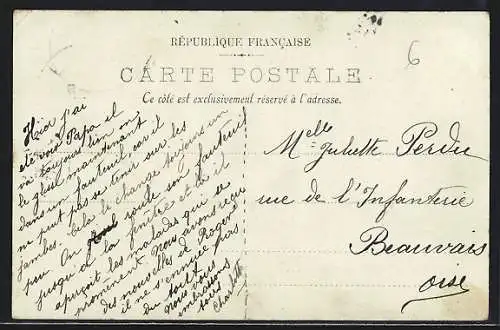 RÉPUBLIQUE FRANÇAISE
CARTE POSTALE
Ce côté est exclusivement réservé à l'adresse.
6
Hier j'ai
été voir Papa il
va toujours bien on
le glisse maintenant
dans un fauteuil, car il
ne peut pas se tenir sur les
jambes. Cela le change toujours un
peu. On roule son fauteuil
jusqu'à la fenêtre et là il
aperçoit les malades qui se
promènent. Nous avons reçu
des nouvelles de Roger
il ne s'ennuie pas
du tout
nous vous
embrassons
tous
Charlotte
Melle Juliette Perdu
rue de l'Infanterie
Beauvais
Oise